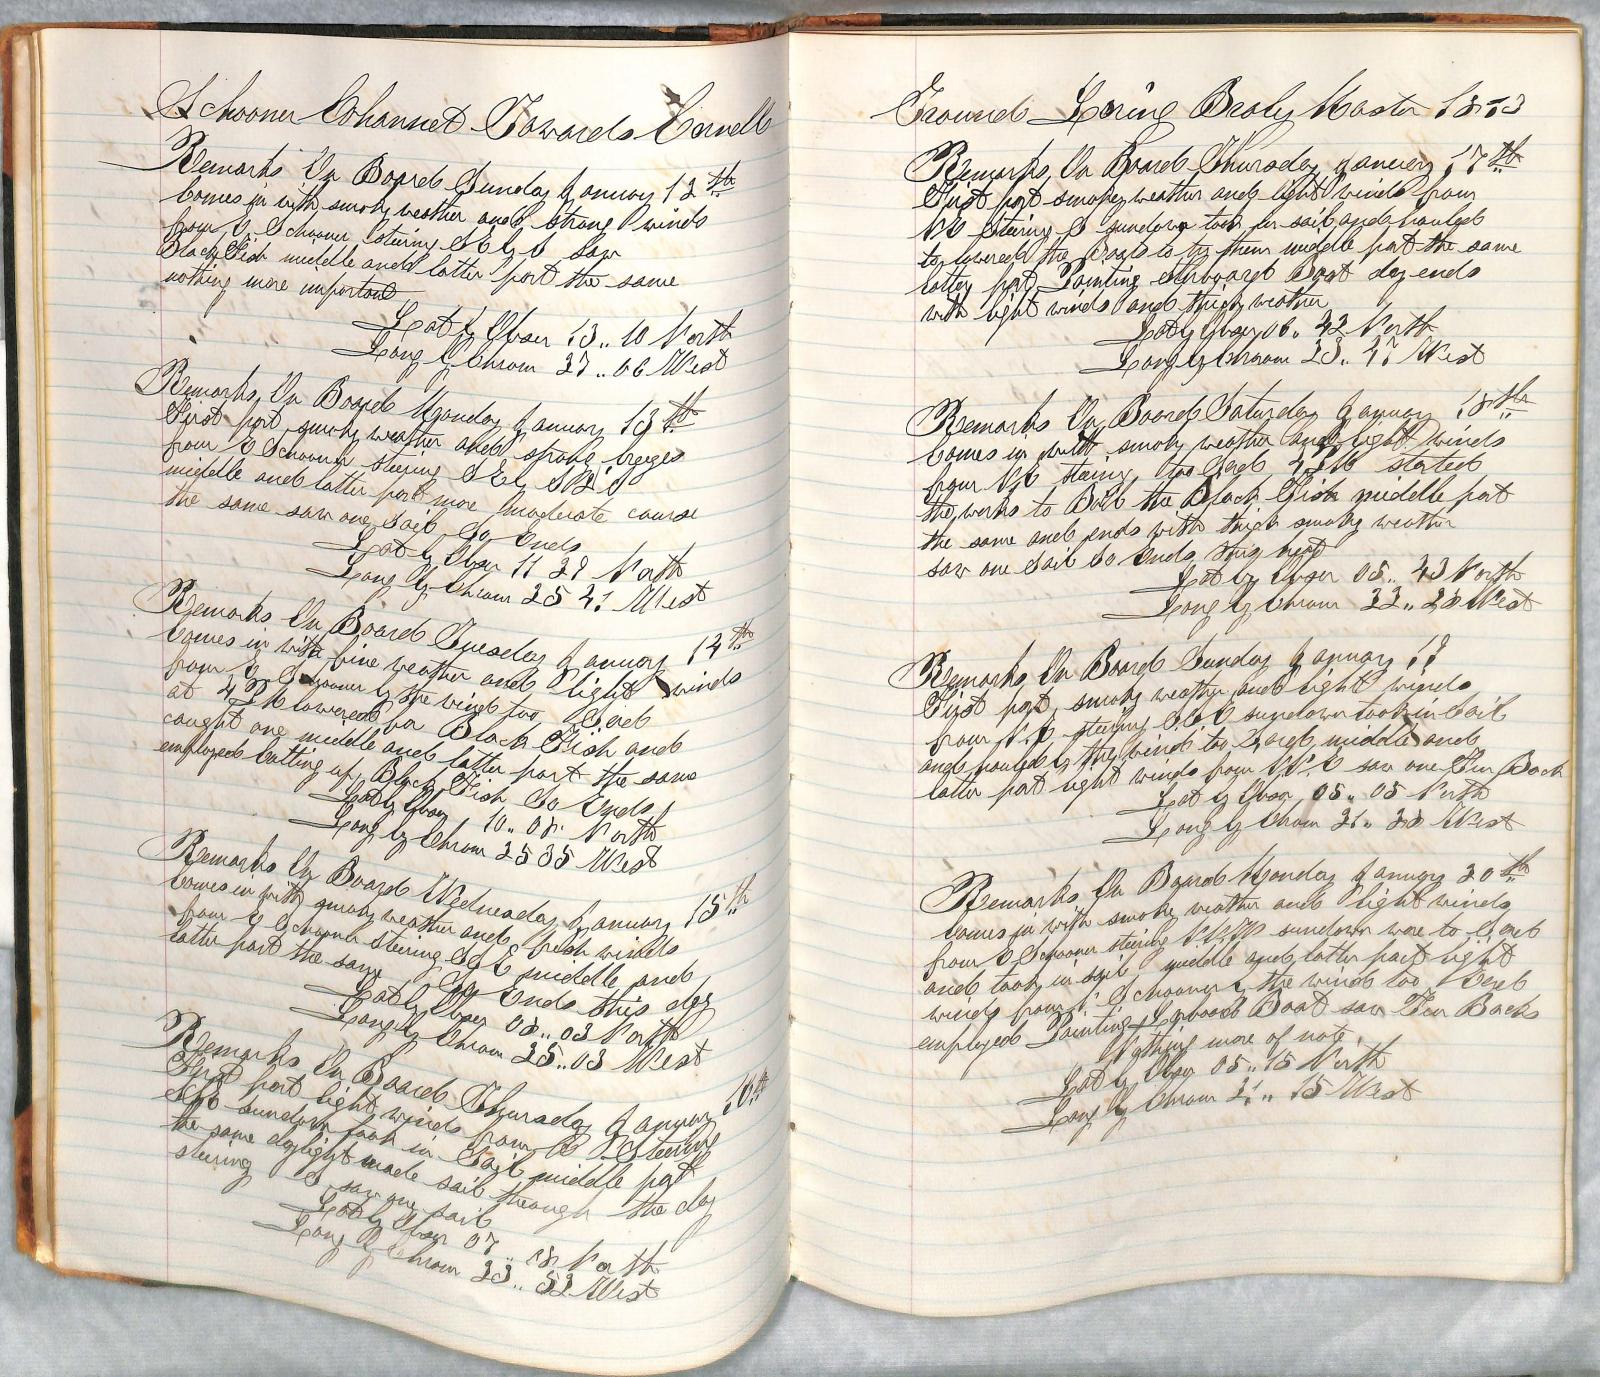 Schooner Cohannet Towards Cornell
Remarks On Board Sunday January 12th
Comes in with smoky weather and strong winds
from E Schooner stering S E by S saw
Black Fish middle and latter part the same
nothing more important
Lat by Obser 13.. 10 North
Long by Chrom 27 .. 06 West
Remarks On Board Monday January 13th
First part smoky weather and strong breezes
from E Schooner stering S E by S
middle and latter part more moderate course
the same saw one Sail So Ends
Lat by Obser 11 29 North
Long by Chrom 25 41 West
Remarks On Board Tuesday January 14th
Comes in with fine weather and light winds
from E Schooner by the wind too
at 4 PM lowered for Black Fish and
caught one middle and latter part the same
employed Cutting up Black Fish So Ends
Lat by Obser 10.. 08 North
Long by Chrom 25 35 West
Remarks On Board Wednesday January 15th
Comes in with smoky weather and fresh winds
from E Schooner stering S E middle and
latter part the same So Ends this day
Lat by Obser 08.. 03 North
Long by Chrom 25.. 03 West
Remarks On Board Thursday January 16th
First part light winds from E Stering
sundown took in Sail middle part
the same daylight made sail through the day
stering S saw one sail
Lat by Obser 07 .. 18 North
Long by Chrom 23 .. 52 West
Ground Loring Braly Master 1873
Remarks On Board Thursday January 17th
First part smoky weather and light winds from
stering S sundown took in sail and hauled
to lowered the Boats to try them middle part the same
latter part Painting Boat day ends
with light winds and thick weather
Lat by Obser 06.. 42 North
Long by Chrom 23.. 47 West
Remarks On Board Saturday January 18th
Comes in with smoky weather and light winds
from stering 4 PM started
the works to Boil the Black Fish middle part
the same and ends with thick smoky weather
saw one Sail So Ends this
Lat by Obser 05.. 43 North
Long by Chrom 22.. West
Remarks On Board Sunday January 19
First part smoky weather and light winds
from stering sundown took in Sail
and hauled by the wind too middle and
latter part light winds from saw one Fin Back
Lat by Obser 05.. 05 North
Long by Chrom 21.. West
Remarks On Board Monday January 20th
Comes in with smoky weather and light winds
from E Schooner stering sundown wore to
and took in sail middle and latter part light
winds from Schooner by the wind too
employed Painting Larboard Boat saw Fin Backs
Nothing more of note
Lat by Obser 05.. 15 North
Long by Chrom 21 .. 15 West